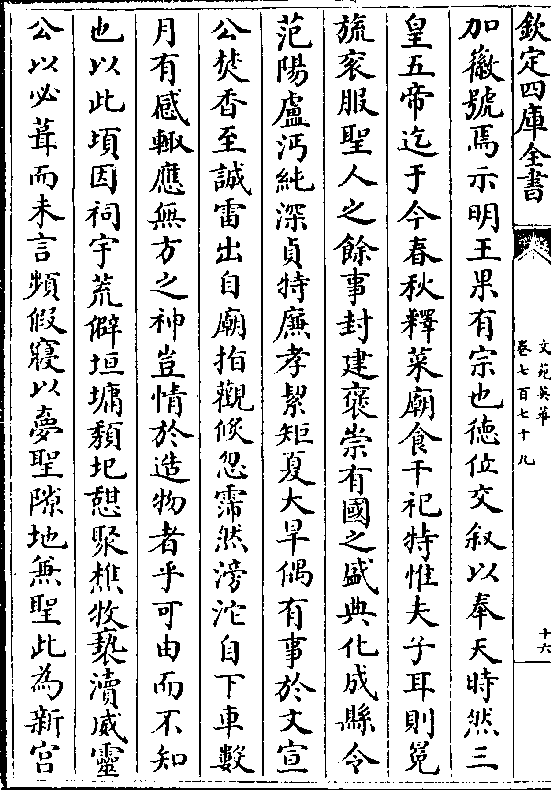 欽定四庫全書
文苑英華
卷七百七十九
十六
加徽號焉示明王果有宗也德位交叙以奉天時然三
皇五帝迄于今春秋釋菜廟食干祀特惟夫子耳則冕
旒衮服聖人之餘事封建褒崇有國之盛典化成縣令
范陽盧沔純深貞特廉孝絜矩夏大旱偶有事於文宣
公焚香至誠雷出自廟拍觀倐忽霈然滂沱自下車數
月有感輙應無方之神豈情於造物者乎可由而不知
也以此項因祠宇荒僻垣墉頽圯憇聚樵牧褻瀆威靈
公以必葺而未言頻假寢以夢聖隙地無聖此為新宫